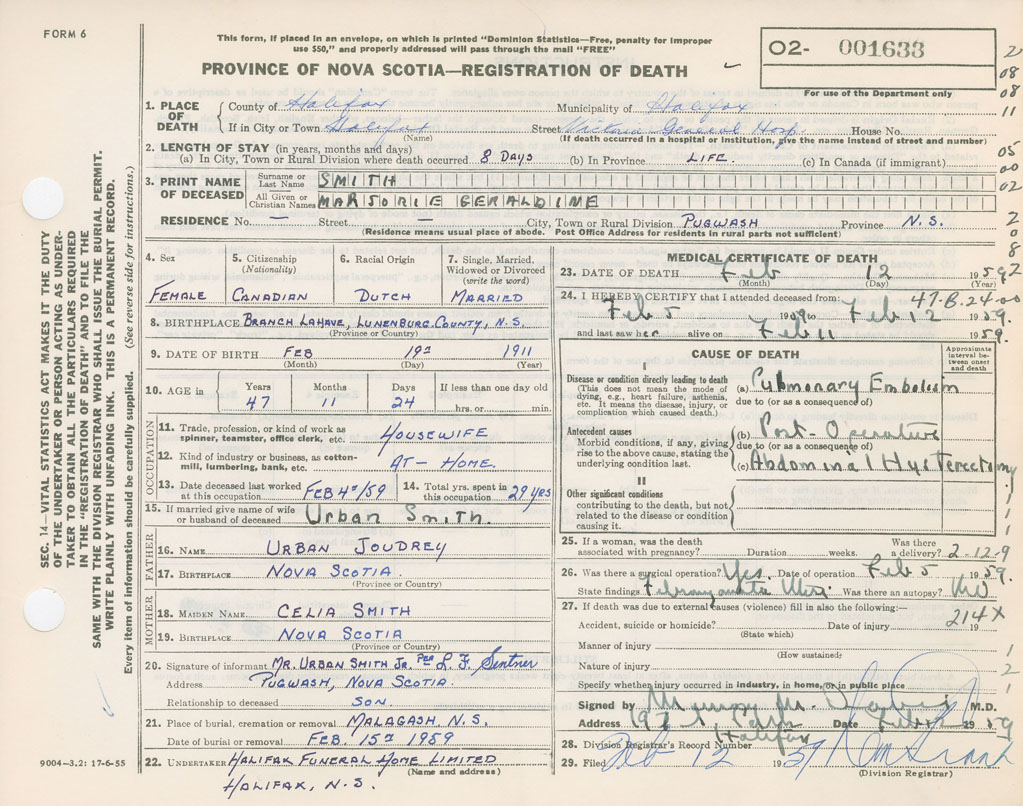 FORM 6
This form, if placed in an envelope, on which is printed "Dominion Statistics—Free, penalty for improper
use $50," and properly addressed will pass through the mail "FREE"
PROVINCE OF NOVA SCOTIA—REGISTRATION OF DEATH
O2- 001633
For use of the Department only
20
08
08
11
05
00
02
2
0
8
SEC. 14—VITAL STATISTICS ACT MAKES IT THE DUTY
OF THE UNDERTAKER OR PERSON ACTING AS UNDER-
TAKER TO OBTAIN ALL THE PARTICULARS REQUIRED
IN THE "REGISTRATION OF DEATH" AND TO FILE THE
SAME WITH THE DIVISION REGISTRAR WHO SHALL ISSUE THE BURIAL PERMIT.
WRITE PLAINLY WITH UNFADING INK. THIS IS A PERMANENT RECORD.
Every item of information should be carefully supplied. (See reverse side for instructions.)
1. PLACE OF DEATH
County of Halifax Municipality of Halifax
If in City or Town Halifax Street Victoria General Hosp. House No.
(Name) (If death occurred in a hospital or institution, give the name instead of street and number)
2. LENGTH OF STAY (in years, months and days)
(a) In City, Town or Rural Division where death occurred 8 DAYS (b) In Province LIFE. (c) In Canada (if immigrant)
3. PRINT NAME OF DECEASED
Surname or Last Name SMITH
All Given or Christian Names MARJORIE GERALDINE
RESIDENCE No. — Street — City, Town or Rural Division PUGWASH Province N.S.
(Residence means usual place of abode. Post Office Address for residents in rural parts not sufficient)
4. Sex
FEMALE
5. Citizenship
(Nationality)
CANADIAN
6. Racial Origin
DUTCH
7. Single, Married,
Widowed or Divorced
(write the word)
MARRIED
8. BIRTHPLACE BRANCH LAHAVE, LUNENBURG COUNTY, N.S.
(Province or Country)
9. DATE OF BIRTH FEB 19th 1911
(Month) (Day) (Year)
10. AGE in
Years Months Days If less than one day old
47 11 24 hrs. or min.
OCCUPATION
11. Trade, profession, or kind of work as
spinner, teamster, office clerk, etc. HOUSEWIFE
12. Kind of industry or business, as cotton-
mill, lumbering, bank, etc. AT-HOME.
13. Date deceased last worked
at this occupation FEB 4th/59
14. Total yrs. spent in
this occupation 29 YRS
15. If married give name of wife
or husband of deceased Urban Smith.
FATHER
16. NAME URBAN JOUDREY
17. BIRTHPLACE NOVA SCOTIA
(Province or Country)
MOTHER
18. MAIDEN NAME CELIA SMITH
19. BIRTHPLACE NOVA SCOTIA
(Province or Country)
20. Signature of informant MR. URBAN SMITH JR. PER L. F.
Address PUGWASH, NOVA SCOTIA.
Relationship to deceased SON.
21. Place of burial, cremation or removal MALAGASH, N.S.
Date of burial or removal FEB. 15th 1959
22. UNDERTAKER HALIFAX FUNERAL HOME LIMITED
(Name and address)
HALIFAX, N.S.
9004-3.2: 17-6-55
MEDICAL CERTIFICATE OF DEATH
23. DATE OF DEATH Feb 12 1959
(Month) (Day) (Year)
92
47-B.24-00
24. I HEREBY CERTIFY that I attended deceased from:
Feb 5 1959 to Feb 12 1959.
and last saw her alive on Feb 11 1959.
CAUSE OF DEATH
Approximate
interval be-
tween onset
and death
I
Disease or condition directly leading to death
(This does not mean the mode of
dying, e.g., heart failure, asthenia,
etc. It means the disease, injury, or
complication which caused death.)
(a) Pulmonary Embolism
due to (or as a consequence of)
Antecedent causes
Morbid conditions, if any, giving
rise to the above cause, stating the
underlying condition last.
(b) Post-Operative
due to (or as a consequence of)
(c) Abdominal Hysterectomy
II
Other significant conditions
contributing to the death, but not
related to the disease or condition
causing it.
25. If a woman, was the death
associated with pregnancy? Duration weeks. Was there a delivery?
2-12-9
26. Was there a surgical operation? Yes. Date of operation Feb 5 1959.
State findings Was there an autopsy? No
27. If death was due to external causes (violence) fill in also the following:—
214X
Accident, suicide or homicide? Date of injury 19
(State which)
Manner of injury
(How sustained)
Nature of injury
Specify whether injury occurred in industry, in home, or in public place
Signed by M.D.
Address Date 1959
Halifax
28. Division Registrar's Record Number
29. Filed Feb 12 1959
(Division Registrar)